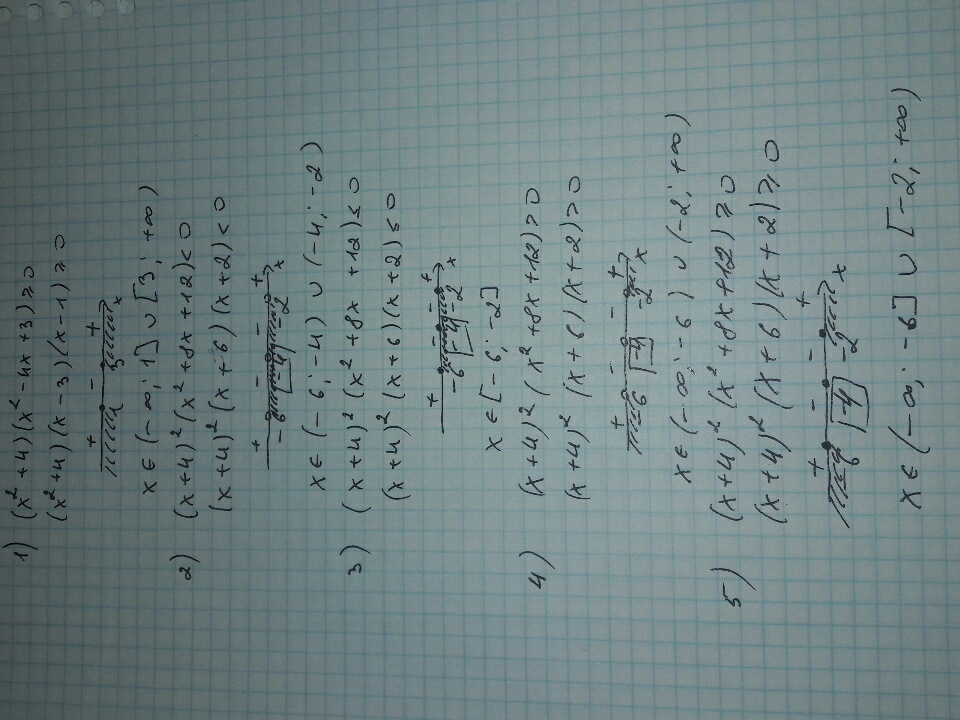 1) (x² + 4)(x² - 4x + 3) ≥ 0
(x² + 4)(x - 3)(x - 1) ≥ 0
+ - +
1 3 x
x ∈ (-∞; 1] ∪ [3; +∞)
2) (x + 4)² (x² + 8x + 12) < 0
(x + 4)² (x + 6)(x + 2) < 0
+ - - +
-6 -4 -2 x
x ∈ (-6; -4) ∪ (-4; -2)
3) (x + 4)² (x² + 8x + 12) ≤ 0
(x + 4)² (x + 6)(x + 2) ≤ 0
+ - - +
-6 -4 -2 x
x ∈ [-6; -2]
4) (x + 4)² (x² + 8x + 12) > 0
(x + 4)² (x + 6)(x + 2) > 0
+ - - +
-6 -4 -2 x
x ∈ (-∞; -6) ∪ (-2; +∞)
5) (x + 4)² (x² + 8x + 12) ≥ 0
(x + 4)² (x + 6)(x + 2) ≥ 0
+ - - +
-6 -4 -2 x
x ∈ (-∞; -6] ∪ [-2; +∞)